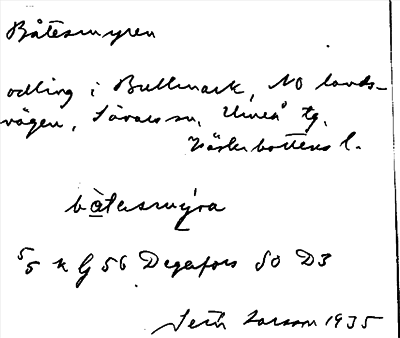 Båtesmyren
odling i Bullmark, NO lands-
vägen, Sävars sn, Umeå tg,
Västerbottens l.
bàtesmýra
5/5 k G 56 Degefors SO D3
Seth Larsson 1935